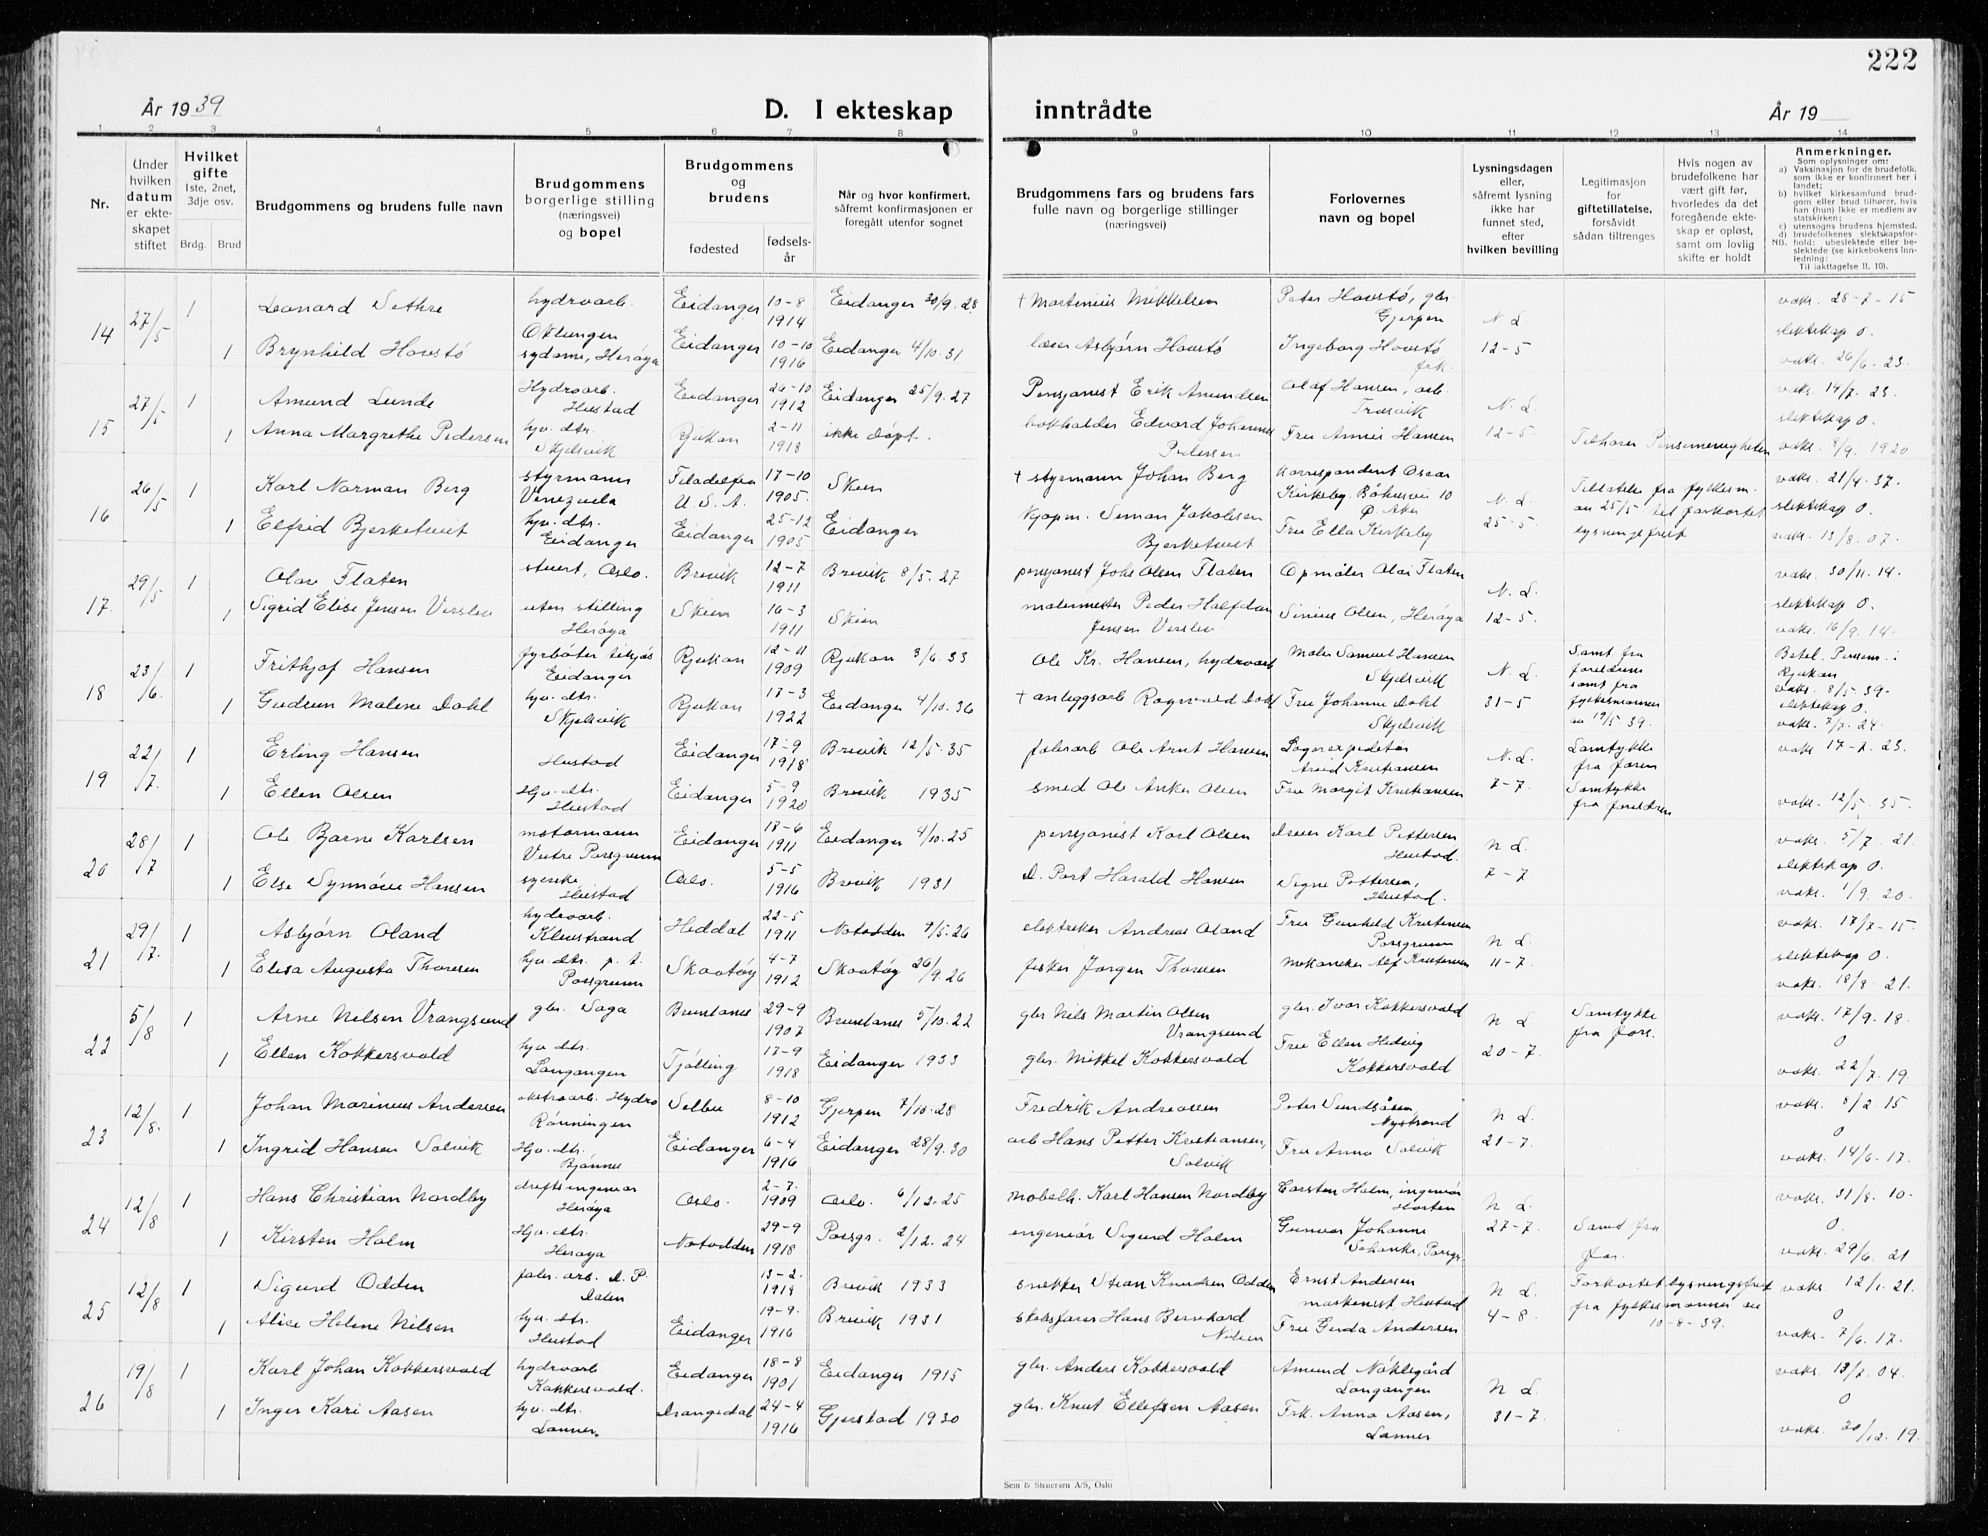 222
År 1939
D. I ekteskap inntrådte
År 19
1 2 3 4 5 6 7 8 9 10 11 12 13 14
Nr.
Under hvilken datum er ekteskapet stiftet
Hvilket gifte
1ste, 2net, 3dje osv.
Brdg. Brud
Brudgommens og brudens fulle navn
Brudgommens borgerlige stilling (næringsvei) og bopel
Brudgommens og brudens
fødested
fødselsår
Når og hvor konfirmert, såfremt konfirmasjonen er foregått utenfor sognet
Brudgommens fars og brudens fars fulle navn og borgerlige stillinger (næringsvei)
Forlovernes navn og bopel
Lysningsdagen eller, såfremt lysning ikke har funnet sted, efter hvilken bevilling
Legitimasjon for giftetillatelse, forsåvidt sådan tiltrenges
Hvis nogen av brudefolkene har vært gift før, hvorledes da det foregående ekteskap er opløst, samt om lovlig skifte er holdt
Anmerkninger.
Som oplysninger om:
a) Vaksinasjon for de brudefolk, som ikke er konfirmert her i landet;
b) hvilket kirkesamfund brudgom eller brud tilhører, hvis han (hun) ikke er medlem av statskirken;
c) utensogns brudens hjemsted.
d) brudefolkenes slektskapsforhold: ubeslektede eller beslektede (se kirkebokens innledning:
NB. Til iakttagelse II, 10).
14 27/5 1 Leonard Sethre hydroarb. Oklungen Eidanger 10-8 1914 Eidanger 30/9. 28 † Martinius Mikkelsen Peter Houstø, gbr. Gjerpen N. L. 12-5 vaks. 28-7-15 slektskap 0.
1 Brynhild Houstø sydame, Herøya Eidanger 10-10 1916 Eidanger 4/10. 31 Asbjørn Houstø Ingeborg Houstø frk. vaks. 26/6. 23.
15 27/5 1 Amund Lunde Hydroarb. Heistad Eidanger 26-10 1912 Eidanger 25/9. 27 Pensjonist Erik Amundsen Olaf Hansen, arb. Trosvik N. L. 12-5 vaks. 14/7. 23. slektskap 0.
1 Anna Margrethe Pedersen hjv. dtr. Skjelsvik Rjukan 2-11 1918 ikke døpt. bokholder Edvard Johannes Pedersen Fru Annie Hansen Tilhører Pinsemenigheten vaks. 8/9. 1920
16 26/5 1 Karl Norman Berg styrmann Venezuela Filadelfia U. S. A. 17-10 1905. Skien † styrmann Johan Berg Korrespondent Oscar Kirkeby, Båhusvei 10 N. L. 25-5 Tillatelse fra fylkesm. av 25/5 til forkortet lysningsfrist vaks. 21/4. 37. slektskap 0.
1 Elfrid Bjerketveit hjv. dtr. Eidanger Eidanger 25-12 1905 Eidanger Kjøpm. Simon Jakobsen Bjerketveit Fru Ella Kirkeby vaks. 13/8. 07.
17 29/5 1 Olav Flaten stuert, Oslo. Brevik 12-7 1911 Brevik 8/5. 27 pensjonist Johs Olsen Flaten Opmåler Olai Flaten N. L. 12-5. vaks. 30/11. 14. slektskap 0.
1 Sigrid Elise Jensen Verslev uten stilling Herøya Skien 16-3 1911 Skien malermester Peder Halfdan Jensen Verslev. Simius Olsen, Herøya vaks. 16/9. 14.
18 23/6. 1 Frithjof Hansen fyrbøter Eidanger Rjukan 12-11 1909 Rjukan 3/6. 33 Ole Kr. Hansen, hydroarb Maler Samuel Hansen Skjelsvik N. L. 31-5 Samt. fra foreldrene samt fra fylkesmannen av 19/5 39. Betel, Pinsem. i Rjukan vaks. 8/5. 39. slektskap 0.
1 Gudrun Malene Dahl hjv. dtr. Skjelsvik Rjukan 17-3 1922 Eidanger 4/10. 36 † anleggsarb Ragnvald Dahl Fru Johanne Dahl Skjelsvik vaks. 7/7. 24.
19 22/7. 1 Erling Hansen Heistad Eidanger 17-9 1918 Brevik 12/5. 35 fabrarb Ole Arnt Hansen Arvid Kristiansen N. L. 7-7. Samtykke fra faren vaks 17-7. 23.
1 Ellen Olsen Hjv. dtr. Heistad Eidanger 5-9 1920 Brevik 1935 smed Ole Anker Olsen Fru Margit Kristiansen Samtykke fra foreldrene vaks. 12/5. 35.
20 28/7 1 Ole Bjarne Karlsen motormann Vestre Porsgrunn Eidanger 17-6 1911 Eidanger 4/10. 25 pensjonist Karl Olsen Karl Pettersen Heistad. N L. 7-7 vaks. 5/7. 21. slektskap 0.
1 Else Synnøve Hansen syerske Heistad Oslo. 5-5 1916 Brevik 1931 D. Port Harald Hansen Signe Pettersen, Heistad. vaks. 1/9. 20.
21 29/7. 1 Asbjørn Oland hydroarb. Kleivstrand Heddal 22-5 1911 Notodden 9/5. 26 elektriker Andreas Oland Fru Gunhild Kristensen Porsgrunn N L. 11-7. vaks. 17/7-15. slektskap 0.
1 Elisa Augusta Thorsen hjv. dtr. p. t. Porsgrunn Skaatøy 4-7 1912 Skaatøy 26/9. 26 fisker Jørgen Thorsen mekaniker Alf Kristensen vaks. 18/8. 21.
22 5/8 1 Arne Nilsen Vrangsund gbr. Saga Brunlanes 29-9 1907 Brunlanes 5/10. 22 gbr Nils Martin Olsen Vrangsund gbr. Ivar Kokkersvold N L. 20-7. Samtykke fra fars. vaks. 17/9. 18. 0
1 Ellen Kokkersvold hjv dtr. Langangen Tjølling 17-9 1918 Eidanger 1933 gbr. Mikkel Kokkersvold Fru Ellen Hedvig Kokkersvold vaks. 22/7. 19.
23 12/8. 1 Johan Marinius Andersen Hydro Rønningen Selbu 8-10 1912 Gjerpen 7/10. 28 Fredrik Andreasen Peter Sundsåsen Nystrand N L. 21-7. vaks. 8/2. 15 0
1 Ingrid Hansen Solvik Hjv. dtr. Bjønnes Eidanger 6-4 1916 Eidanger 28/9. 30 arb Hans Petter Kristiansen, Solvik Fru Anna Solvik vaks. 14/6. 17.
24 12/8 1 Hans Christian Nordby driftsingeniør Herøya Oslo. 2-7. 1909 Oslo. 6/12. 25 møbelh. Karl Hansen Nordby Carsten Holm, ingeniør Horten N L. 27-7. vaks. 31/8. 10. 0.
1 Kirsten Holm Hjv. dtr. Herøya Notodden 29-9 1918 Porsgr. 2/12. 24 ingeniør Sigurd Holm Gunvor Johanne Schanke, Porsgr. Samt fra far. vaks. 29/6. 21
25 12/8 1 Sigurd Odden fabr. arb. D. P. Dalen 13-2. 1919 Brevik 1933 snekker Stian Knudsen Odden Ernst Andersen maskinist Heistad N L. 4-8. Forkortet lysningsfrist fra fylkesmannen av 10-8-39. vaks. 12/1. 21. 0
1 Alice Helene Nilsen hjv. dtr. Heistad Eidanger 19-9. 1916 Brevik 1931 skibsfører Hans Bernhard Nilsen Fru Gerda Andersen vaks- 7/6. 17.
26 19/8 1 Karl Johan Kokkersvold hydroarb Kokkersvold. Eidanger 18-8 1901 Eidanger 1915 gbr. Anders Kokkersvold Amund Nøklegård Langangen N L. 31-7. vaks. 13/2. 04. 0
1 Inger Kari Aasen hjv. dtr. Lanner. Drangedal 24-4 1916 Gjerstad 1930 gbr. Knut Ellefsen Aasen Frk. Anna Aasen, Lanner vaks. 20/12. 19.
Sem & Stenersen A/S, Oslo